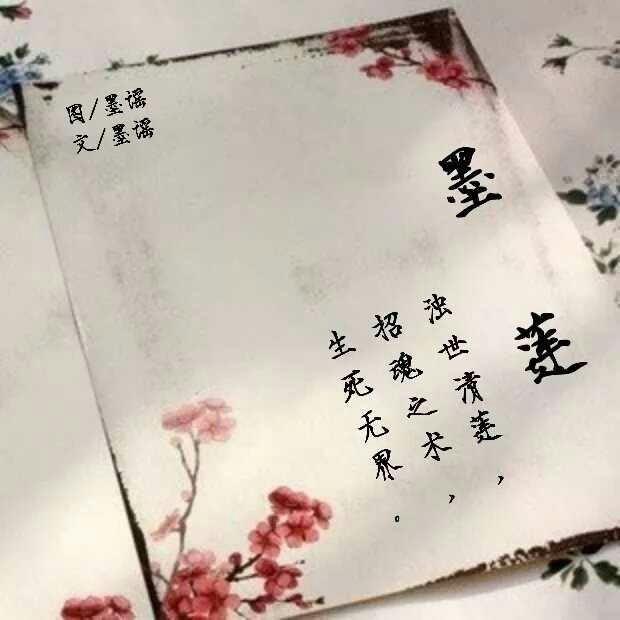 图/墨谣
文/墨谣
墨莲
浊世清莲，
招魂之术，
生死无界。